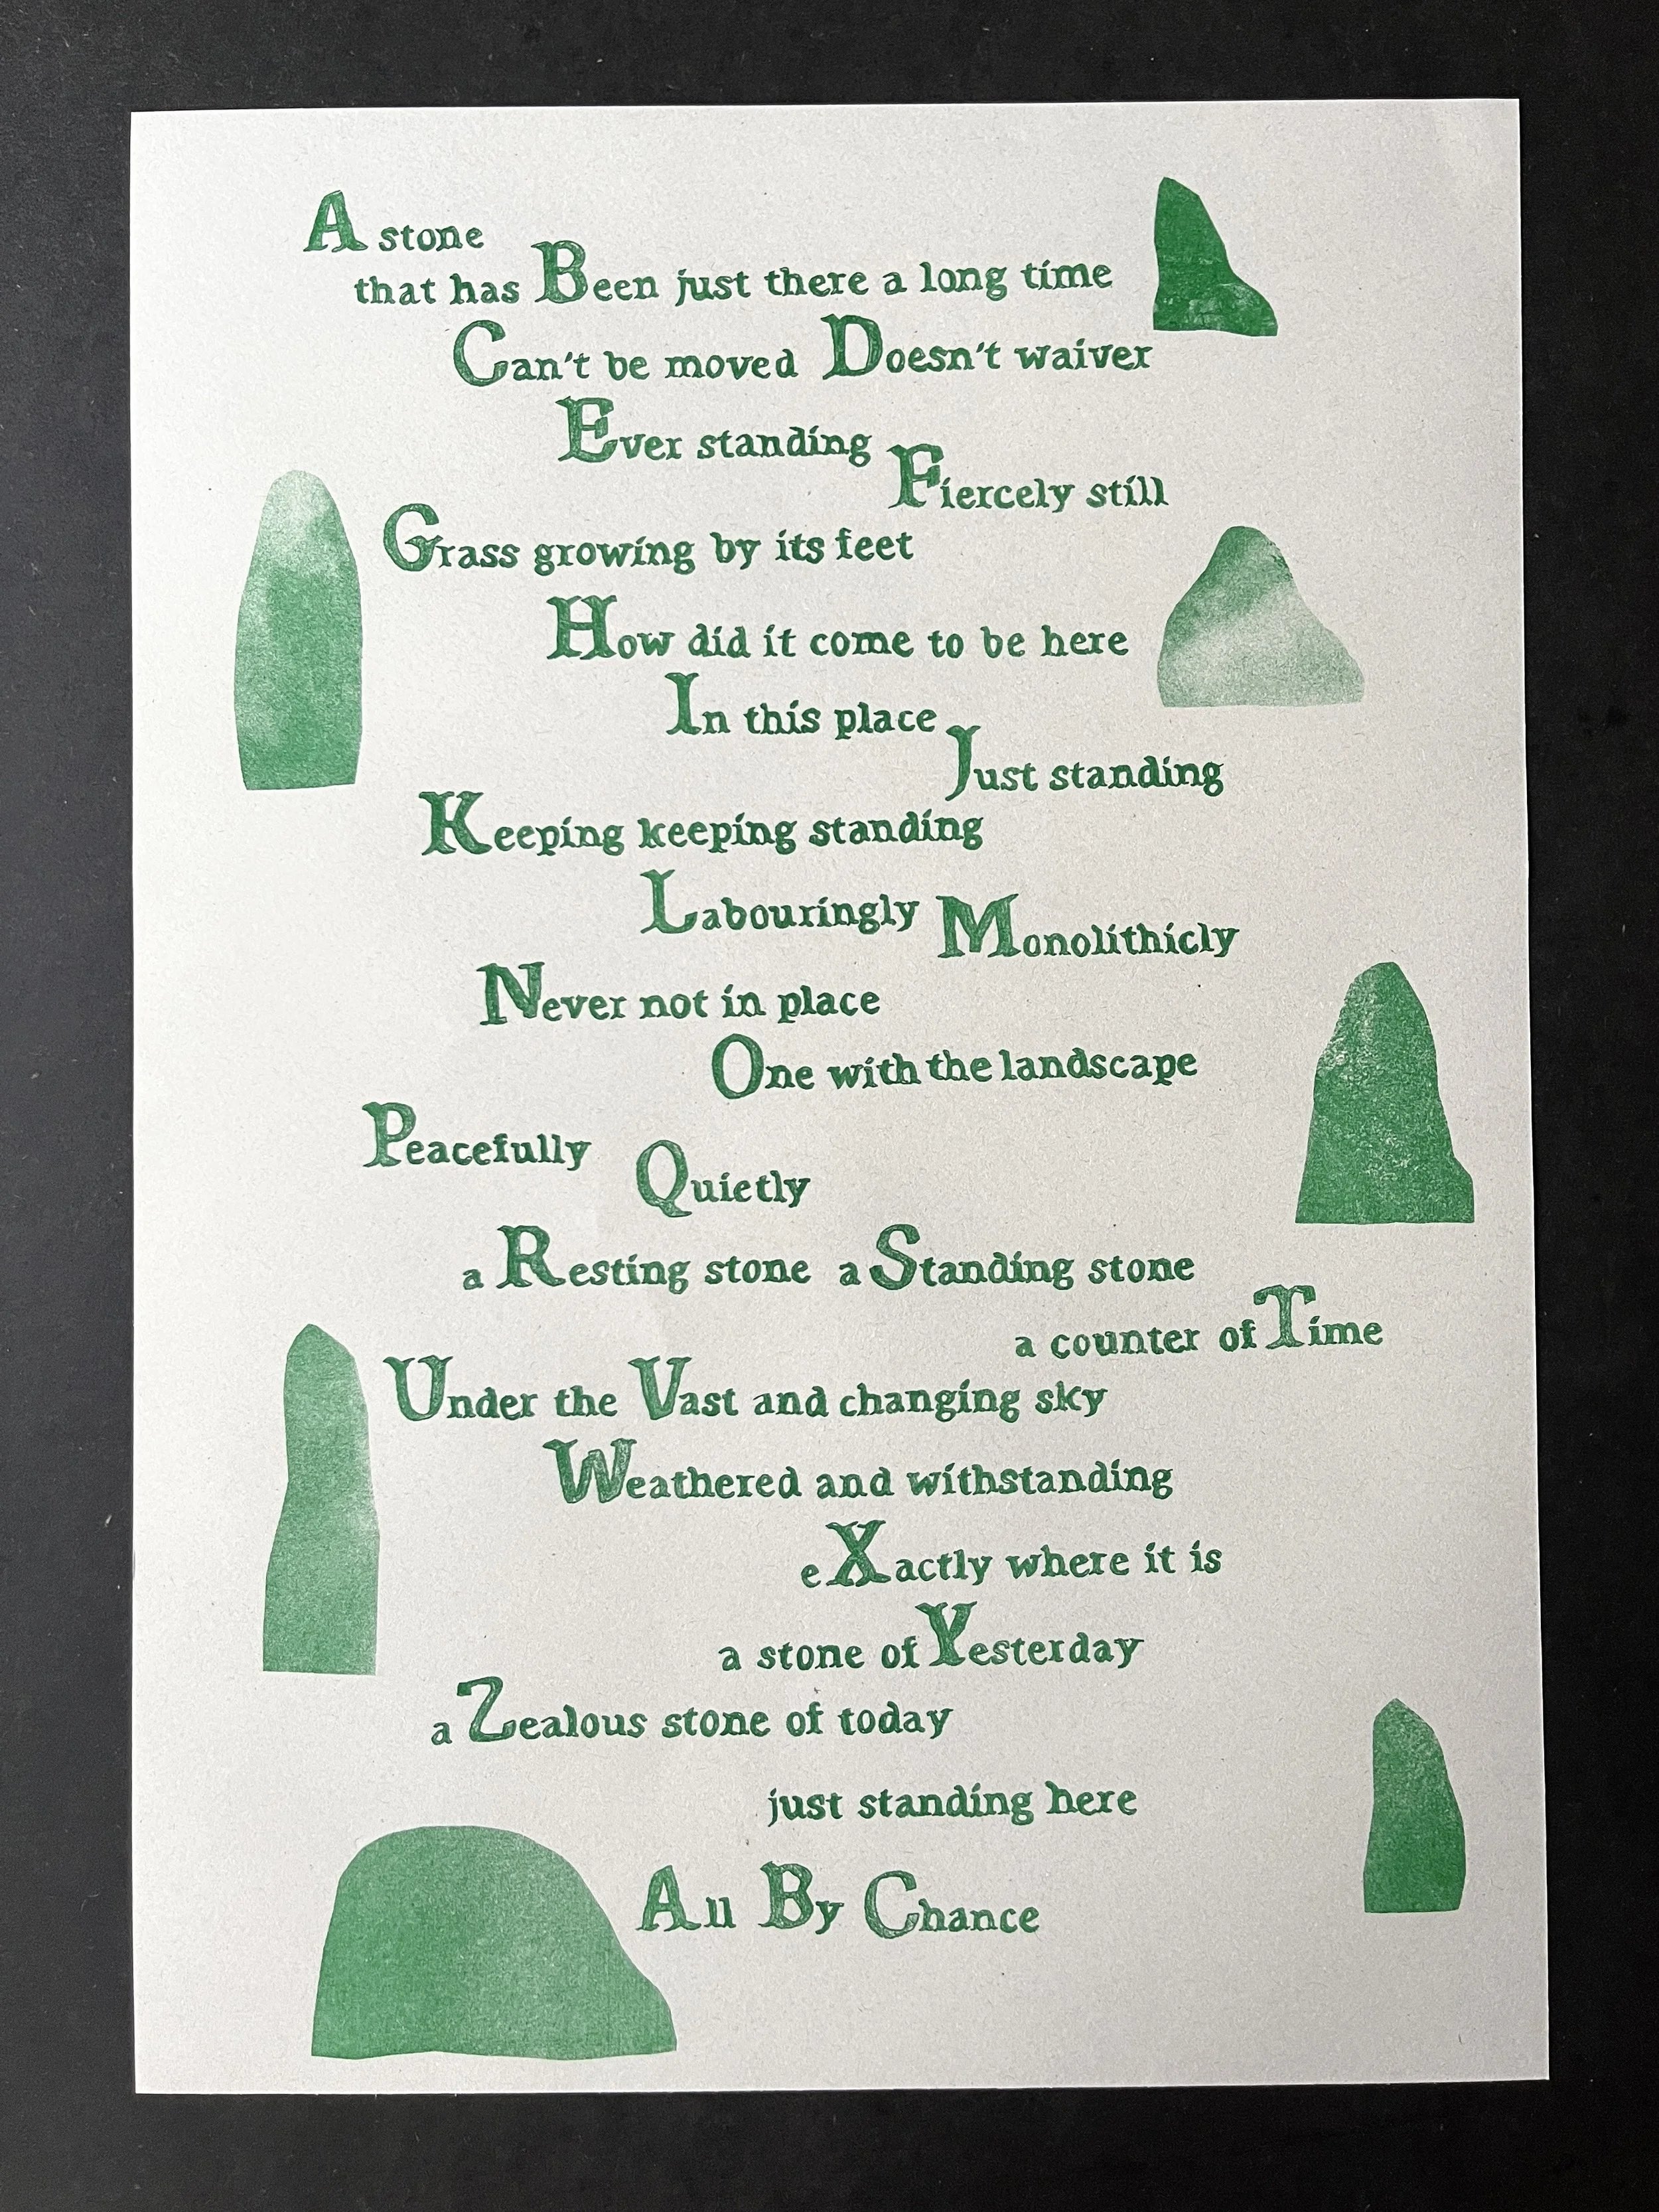 A stone
that has Been just there a long time
Can't be moved Doesn't waiver
Ever standing
Fiercely still
Grass growing by its feet
How did it come to be here
In this place
Just standing
Keeping keeping standing
Labouringly Monolithicly
Never not in place
One with the landscape
Peacefully
Quietly
a Resting stone a Standing stone
a counter of Time
Under the Vast and changing sky
Weathered and withstanding
eXactly where it is
a stone of Yesterday
a Zealous stone of today
just standing here
All By Chance